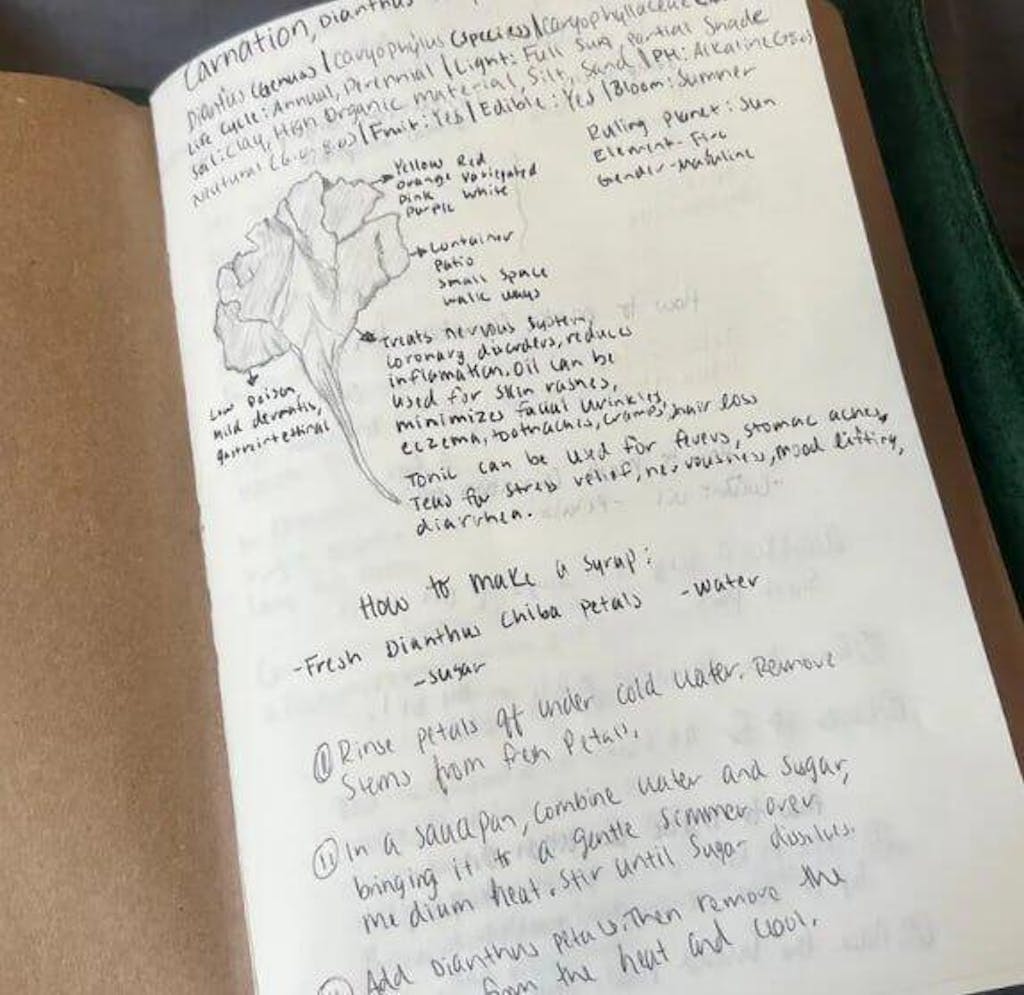 Carnation, Dianthus
Dianthus (Genus) / caryophylus (species) / caryophyllaceae
Life Cycle: Annual, Perennial / Light: Full Sun, Partial Shade
Soil: Clay, High Organic material, Silt, Sand / PH: Alkaline (
Neutural (6.0-8.0) / Fruit: Yes / Edible: Yes / Bloom: Summer
Ruling Planet: Sun
Element- Fire
Gender- Masculine
Yellow Red
Orange Variegated
Pink
Purple White
Container
Patio
Small Space
Walk ways
Treats nervous system,
coronary disorders, reduces
inflamation. Oil can be
used for skin rashes,
minimizes facial wrinkles,
eczema, toothaches, cramps, hair loss
Tonic can be used for fevers, stomac aches,
Teas for stress relief, nervousness, mood lifting,
diarrhea.
Low Poison
mild dermatis,
gastrintestinal
How to make a syrup:
-Fresh Dianthus Chiba petals -water
-sugar
① Rinse petals off under cold water. Remove
Stems from fresh Petals.
⑪ In a saucepan, combine water and sugar,
bringing it to a gentle simmer over
medium heat. Stir until sugar dissolves.
Add Dianthus petals. Then remove the
from the heat and cool.